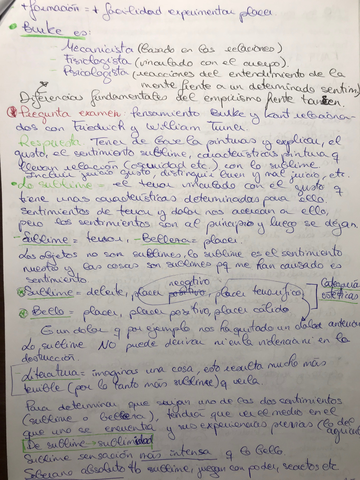 +formación = + facilidad experimentar placer
Burke es:
Mecanicista (basado en las relaciones)
Fisiologista (vinculado con el cuerpo)
Psicologista (reacciones del entendimiento de la
mente frente a un determinado sentim)
Diferencias fundamentales del empirismo frente
Pregunta examen: pensamiento Burke y Kant relaciona-
dos con Friedrich y William Turner.
Respuesta: Tener de base la pintura y explicar, el
gusto, el sentimiento sublime, características pintura q
lleva relación (oscuridad etc) con lo sublime.
Incluir juicio gusto, distinguir buen y mal juicio, etc.
Lo sublime = el terror vinculado con el gusto q
tiene unas características determinadas para ello
sentimientos de terror y dolor nos acercan a ello,
pero los sentimientos son al principio y luego se dejan
- Sublime = terror, - Belleza = placer
Los objetos no son sublimes, lo sublime es el sentimiento
nuestro y las cosas son sublimes pq me han causado es
sentimiento.
negativo
Sublime = deleite, placer positivo, placer terrorífico
Bello = placer, placer positivo, placer cálido
Categorías estéticas
Es un dolor q por ejemplo nos ha quitado un dolor anterior
Lo sublime NO puede derivar ni en la violencia ni en la
destrucción
Literatura: imaginas una cosa, esto resulta mucho más
terrible (por lo tanto más sublime) q verla
Para determinar que surjan uno de los dos sentimientos
(sublime o belleza), tendrá que ver el medio en el
que uno se encuentra y sus experiencias previas
De sublime → sublimidad
Sublime sensación más intensa q lo bello
Soberano absoluto tb sublime, juegan con poder, respeto etc